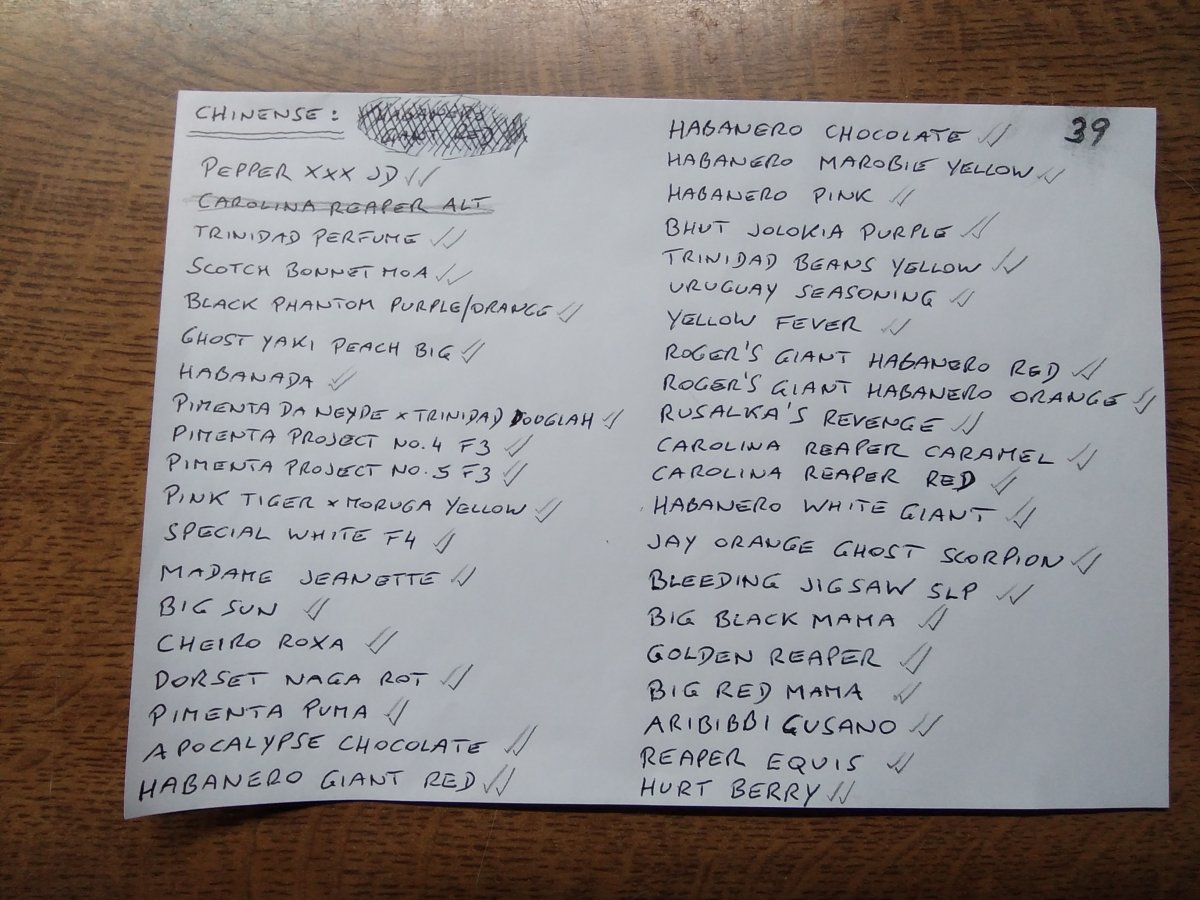 CHINENSE: HABANERO
GIANT RED
PEPPER XXX JD
CAROLINA REAPER ALT
TRINIDAD PERFUME
SCOTCH BONNET MOA
BLACK PHANTOM PURPLE/ORANGE
GHOST YAKI PEACH BIG
HABANADA
PIMENTA DA NEYDE x TRINIDAD DOUGLAH
PIMENTA PROJECT NO.4 F3
PIMENTA PROJECT NO.5 F3
PINK TIGER x MORUGA YELLOW
SPECIAL WHITE F4
MADAME JEANETTE
BIG SUN
CHEIRO ROXA
DORSET NAGA ROT
PIMENTA PUMA
APOCALYPSE CHOCOLATE
HABANERO GIANT RED
39
HABANERO CHOCOLATE
HABANERO MAROBIE YELLOW
HABANERO PINK
BHUT JOLOKIA PURPLE
TRINIDAD BEANS YELLOW
URUGUAY SEASONING
YELLOW FEVER
ROGER'S GIANT HABANERO RED
ROGER'S GIANT HABANERO ORANGE
RUSALKA'S REVENGE
CAROLINA REAPER CARAMEL
CAROLINA REAPER RED
HABANERO WHITE GIANT
JAY ORANGE GHOST SCORPION
BLEEDING JIGSAW SLP
BIG BLACK MAMA
GOLDEN REAPER
BIG RED MAMA
ARIBIBBI GUSANO
REAPER EQUIS
HURT BERRY